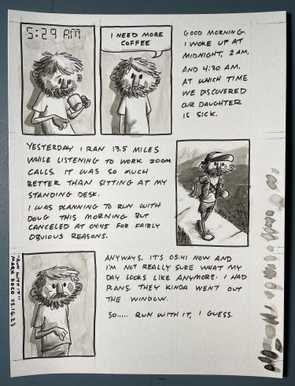 5:29 AM
I NEED MORE
COFFEE
GOOD MORNING.
I WOKE UP AT
MIDNIGHT, 2AM,
AND 4:30 AM.
AT WHICH TIME
WE DISCOVERED
OUR DAUGHTER
IS SICK.
YESTERDAY I RAN 13.5 MILES
WHILE LISTENING TO WORK ZOOM
CALLS. IT WAS SO MUCH
BETTER THAN SITTING AT MY
STANDING DESK.
I WAS PLANNING TO RUN WITH
DOUG THIS MORNING BUT
CANCELED AT 0445 FOR FAIRLY
OBVIOUS REASONS.
ANYWAYS. IT'S 05:41 NOW AND
I'M NOT REALLY SURE WHAT MY
DAY LOOKS LIKE ANYMORE. I HAD
PLANS. THEY KINDA WENT OUT
THE WINDOW.
SO..... RUN WITH IT, I GUESS.
"RUN WITH IT"